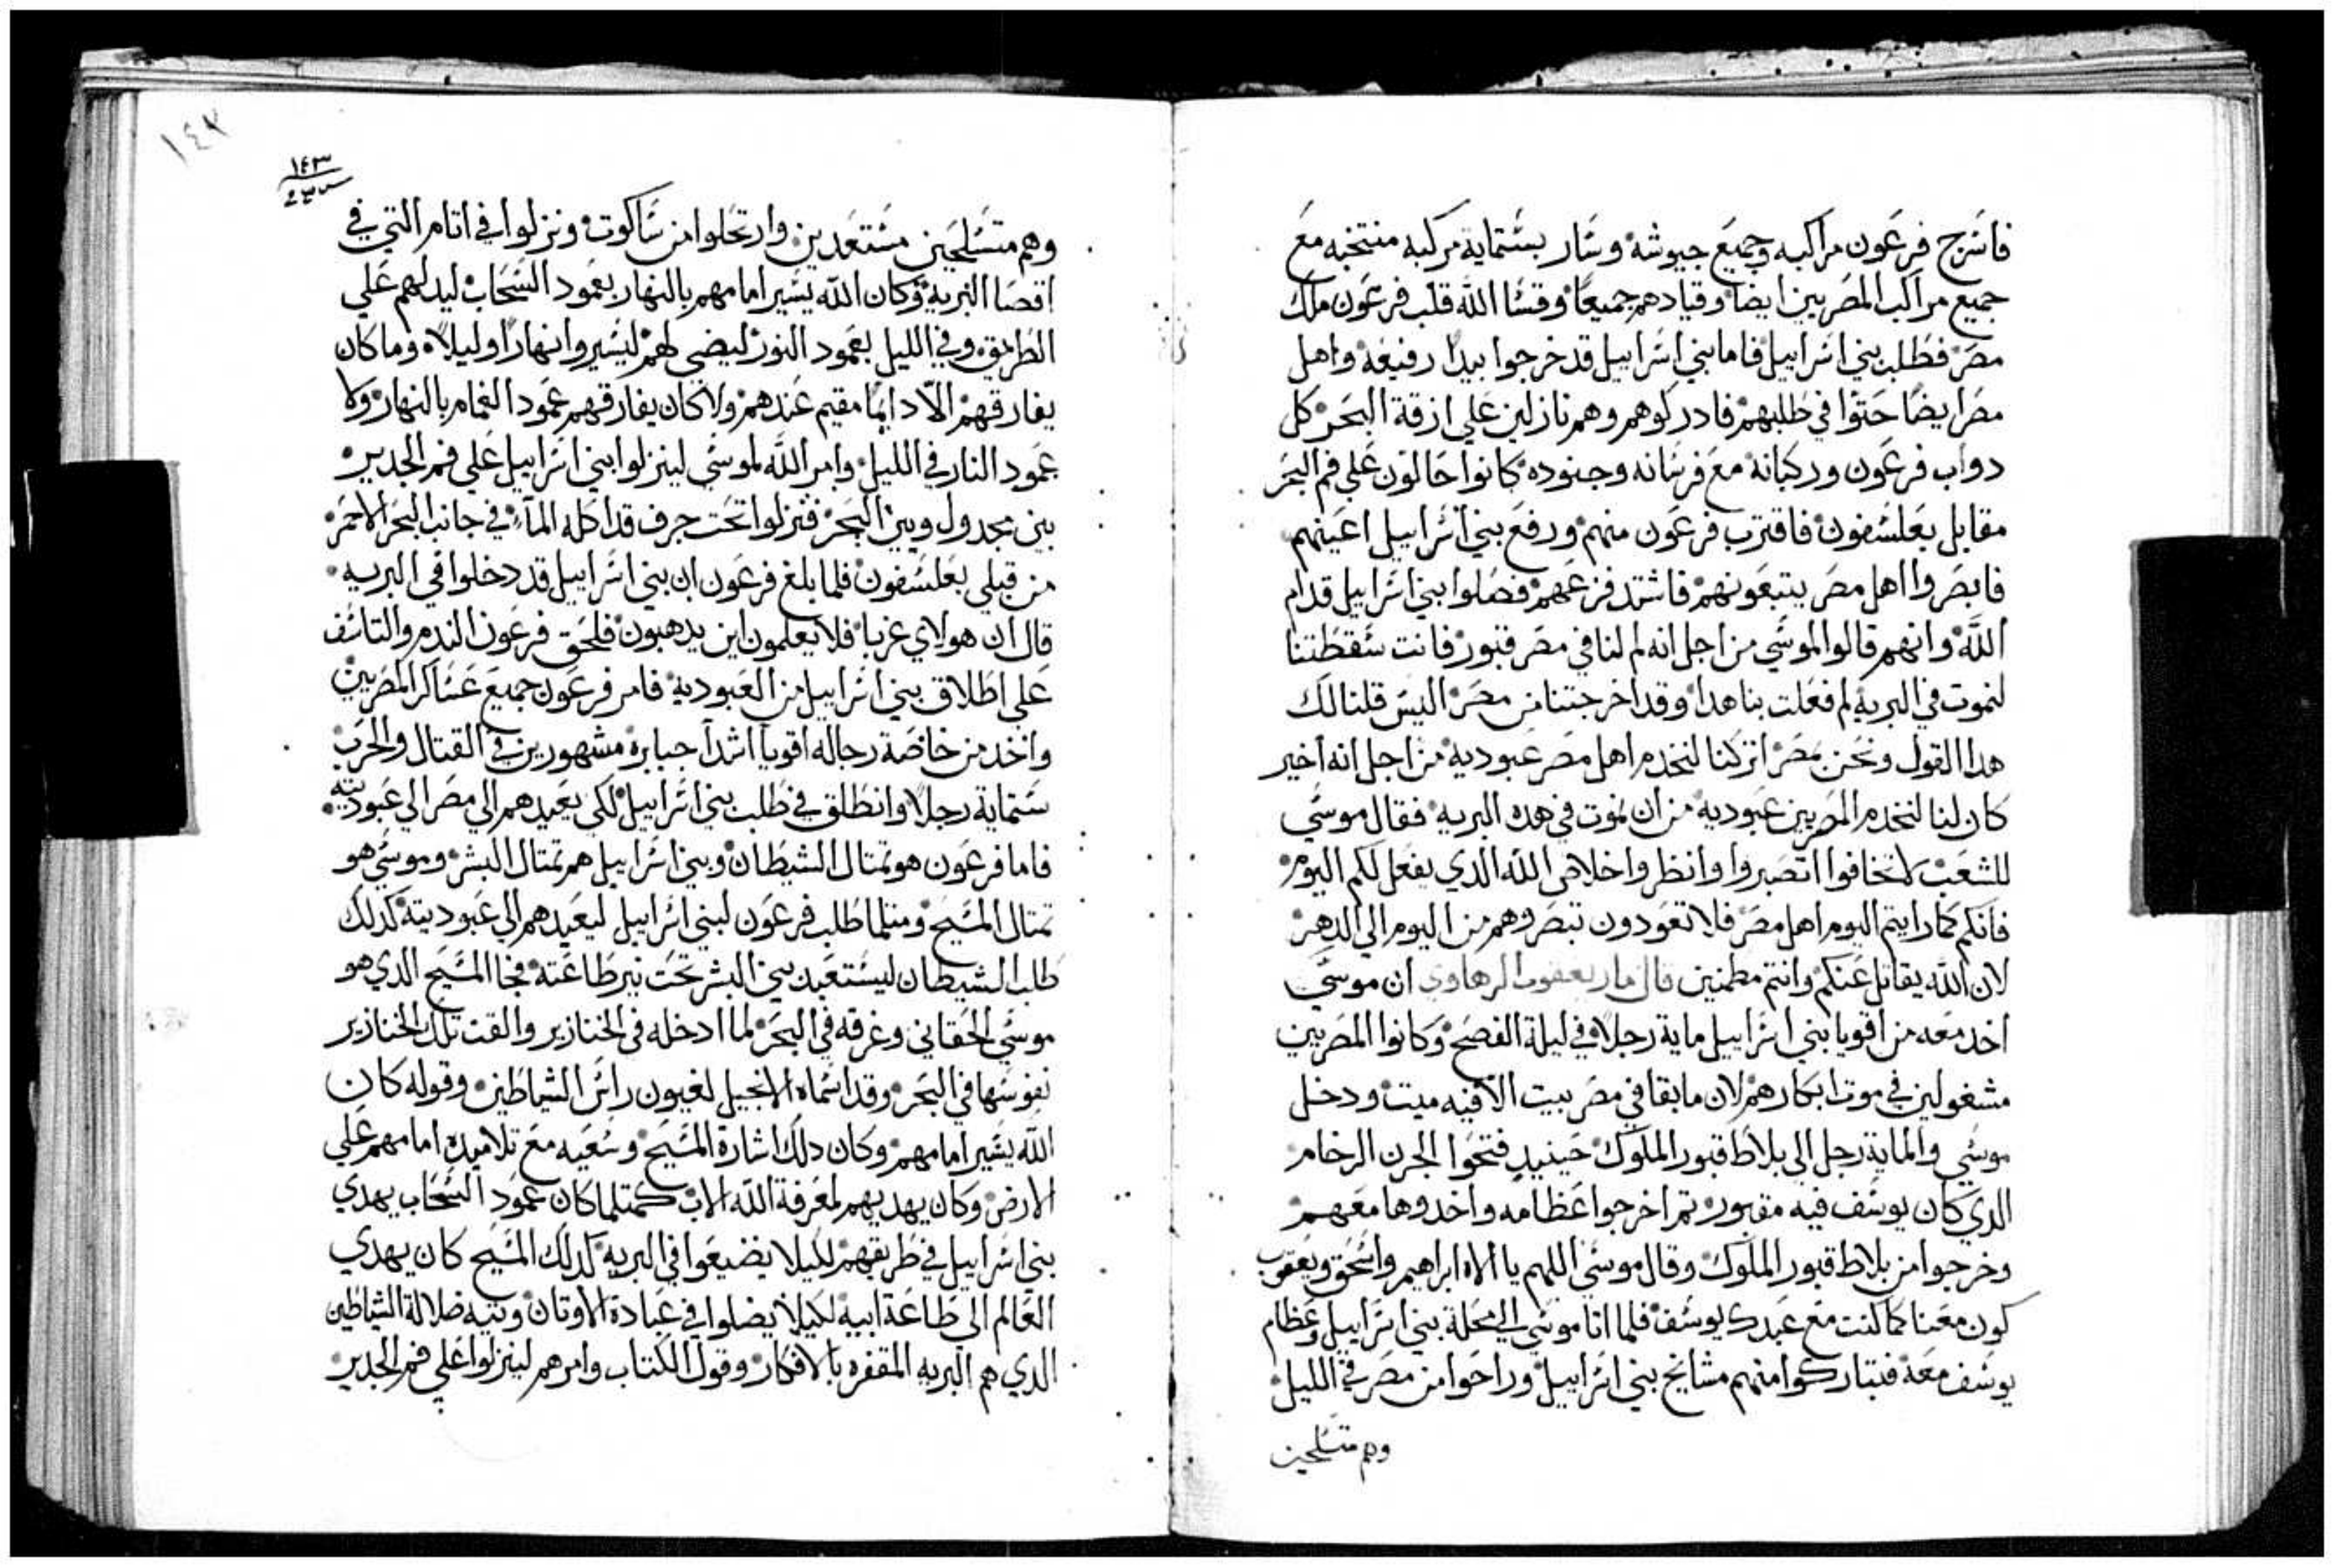 فاسرج فرعون مراكبه وجميع جيوشه وسار بستماية مركبه منتخبه مع
جميع مراكب المصريين ايضا وقيادهم جميعا وقسا الله قلب فرعون ملك
مصر فطلب بني اسراييل فاما بني اسراييل قد خرجوا بيدا رفيعه واهل
مصر ايضا حتوا في طلبهم فادركوهم وهم نازلين علي ازقة البحر كل
دواب فرعون وركبانه مع فرسانه وجنوده كانوا حالون علي فم البحر
مقابل بعلسفون فاقترب فرعون منهم ورفع بني اسراييل اعينهم
فابصروا اهل مصر يتبعونهم فاشتد فزعهم فصلوا بني اسراييل قدام
الله وانهم قالوا لموسي من اجل انه لم لنا في مصر قبور فانت سقطتنا
لنموت في البريه لم فعلت بنا هدا وقد اخرجتنا من مصر اليس قلنا لك
هدا القول ونحن بمصر اتركنا لنخدم اهل مصر عبوديه من اجل انه اخير
كان لنا لنخدم المصريين عبوديه من ان نموت في هده البريه فقال موسي
للشعب لا تخافوا اتصبروا وانظروا خلاص الله الدي يفعل لكم اليوم
فانكم كما رايتم اليوم اهل مصر فلا تعودون تبصروهم من اليوم الي الدهر
لان الله يقاتل عنكم وانتم مطمنين قال مار يعقوب الرهاوي ان موسي
اخد معه من اقويا بني اسراييل ماية رجلا في ليلة الفصح وكانوا المصريين
مشغولين في موت ابكارهم لان ما بقا في مصر بيت الا فيه ميت ودخل
موسي والماية رجل الي بلاط قبور الملوك حينيد فتحوا الجرن الرخام
الدي كان يوسف فيه مقبور تم اخرجوا عظامه واخدوها معهم
وخرجوا من بلاط قبور الملوك وقال موسي اللهم يا الاه ابراهيم واسحق ويعقوب
كون معنا كما كنت مع عبدك يوسف فلما اتا موسي الي محلة بني اسراييل وعظام
يوسف معه فتباركوا منهم مشايخ بني اسراييل وراحوا من مصر في الليل
وهم متسلحين
١٤٣
١٤٣
وهم متسلحين مستعدين وارتحلوا من ساكوت ونزلوا في اتام التي في
اقصا البرية وكان الله يسير امامهم بالنهار بعمود السحاب ليدلهم علي
الطريق وفي الليل بعمود النور ليضي لهم ليسيروا نهارا وليلا وما كان
يفارقهم الا دايما مقيم عندهم ولا كان يفارقهم عمود الغمام بالنهار ولا
عمود النار في الليل وامر الله لموسي لينزلوا بني اسراييل علي فم الجدير
بين مجدول وبين البحر فنزلوا تحت جرف قد اكله الماء في جانب البحر الاحمر
من قبلي بعلسفون فلما بلغ فرعون ان بني اسراييل قد دخلوا في البريه
قال ان هولاي غربا فلا يعلمون اين يدهبون فلحق فرعون الندم والتاسف
علي اطلاق بني اسراييل من العبوديه فامر فرعون جميع عساكر المصريين
واخد من خاصة رجاله اقويا اشدا جبابره مشهورين في القتال والحرب
ستماية رجلا وانطلق في طلب بني اسراييل لكي يعيدهم الي مصر الي عبوديته
فاما فرعون هو تمتال الشيطان وبني اسراييل هم تمتال البشر وموسي هو
تمتال المسيح ومتلما طلب فرعون لبني اسراييل ليعيدهم الي عبوديته كدلك
طلب الشيطان ليستعبد بني البشر تحت نير طاعته فجا المسيح الدي هو
موسي الحقاني وغرقه في البحر لما ادخله في الخنازير والقت تلك الخنازير
نفوسها في البحر وقد اسماه الانجيل لغيون راس الشياطين وقوله كان
الله يسير امامهم وكان دلك اشارة المسيح وسعيه مع تلاميده امامهم علي
الارض وكان يهديهم لمعرفة الله الاب كمتلما كان عمود السحاب يهدي
بني اسراييل في طريقهم لكيلا يضيعوا في البريه كدلك المسيح كان يهدي
العالم الي طاعة ابيه لكيلا يضلوا في عبادة الاوتان وتيه ضلالة الشياطين
الدي هم البريه المقفره بالافكار وقول الكتاب وامرهم لينزلوا علي فم الجدير